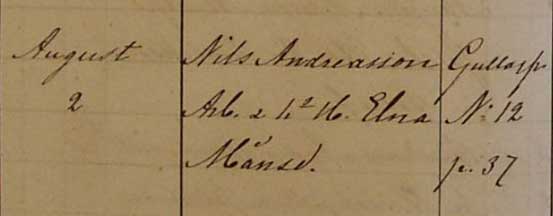 August Nils Andreasson Gullarp
2 Arb. & h² H. Elna N: 12
Månsd. p. 37